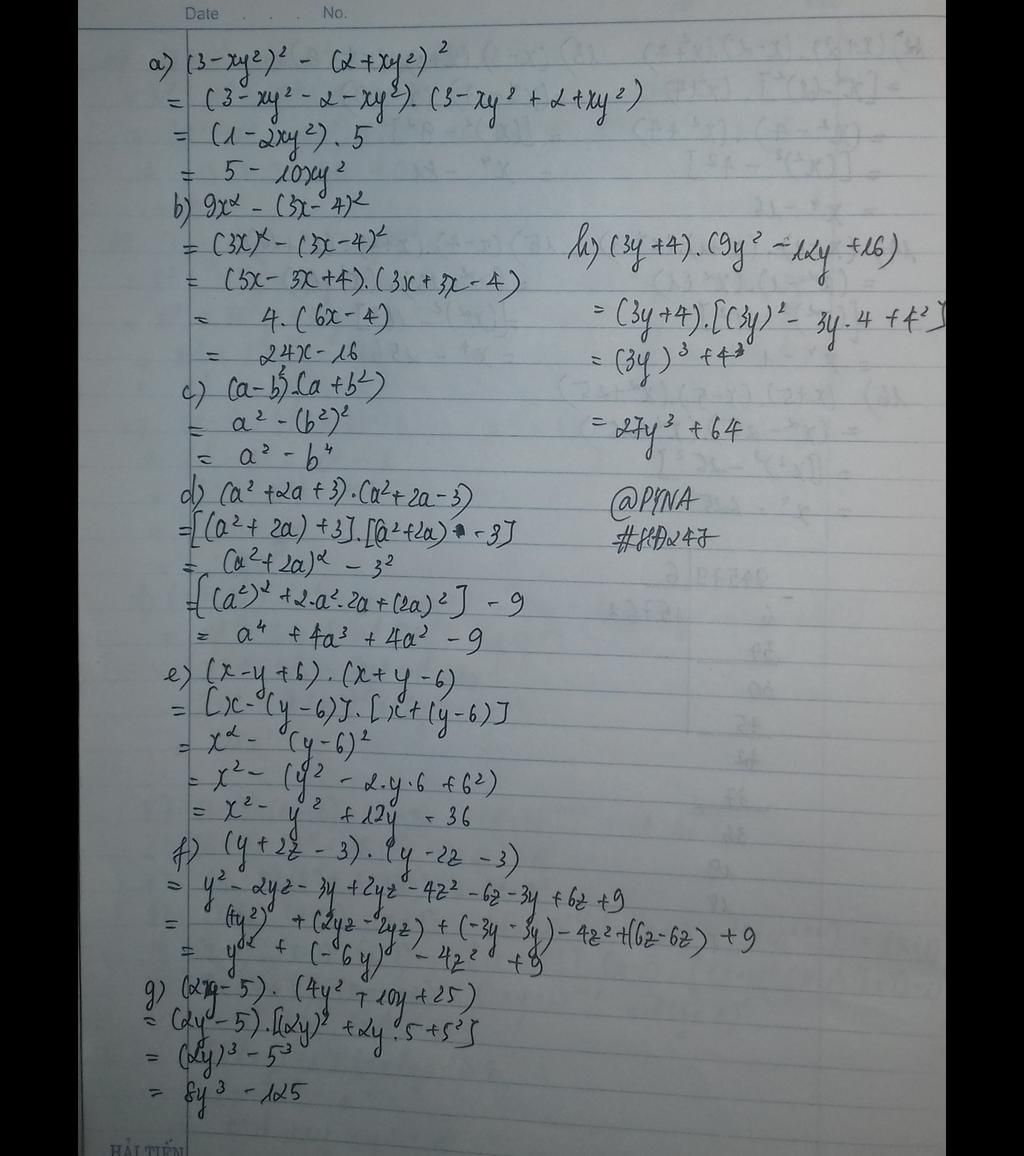 Date . . . No.
a) (3-xy²)² - (2+xy²)²
= (3-xy² - 2 - xy²).(3-xy² + 2 + xy²)
= (1-2xy²).5
= 5 - 10xy²
b) 9x² - (3x-4)²
= (3x)² - (3x-4)²
= (3x - 3x+4).(3x+3x-4)
= 4.(6x-4)
= 24x-16
c) (a-b²).(a+b²)
= a² - (b²)²
= a² - b⁴
d) (a²+2a+3).(a²+2a-3)
=[(a²+2a)+3].[(a²+2a) -3]
= (a²+2a)² - 3²
=[(a²)² + 2.a².2a+(2a)²] - 9
= a⁴ + 4a³ + 4a² - 9
e) (x-y+6).(x+y-6)
= [x-(y-6)].[x+(y-6)]
= x² - (y-6)²
= x² - (y² - 2.y.6 + 6²)
= x² - y² + 12y - 36
f) (y+2z-3).(y-2z-3)
= y² - 2yz - 3y + 2yz - 4z² - 6z - 3y + 6z + 9
= (+y²) + (2yz-2yz) + (-3y-3y) - 4z² + (6z-6z) + 9
= y² + (-6y) - 4z² + 9
g) (2y-5).(4y²+10y+25)
= (2y-5).[(2y)²+2y.5+5²]
= (2y)³ - 5³
= 8y³ - 125
h) (3y+4).(9y²-12y+16)
= (3y+4).[(3y)² - 3y.4 + 4²]
= (3y)³ + 4³
= 27y³ + 64
@PYNA
HẢI TIẾN